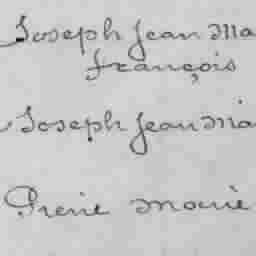 Joseph Jean Ma
François
Joseph Jean Ma
Pierre Marie